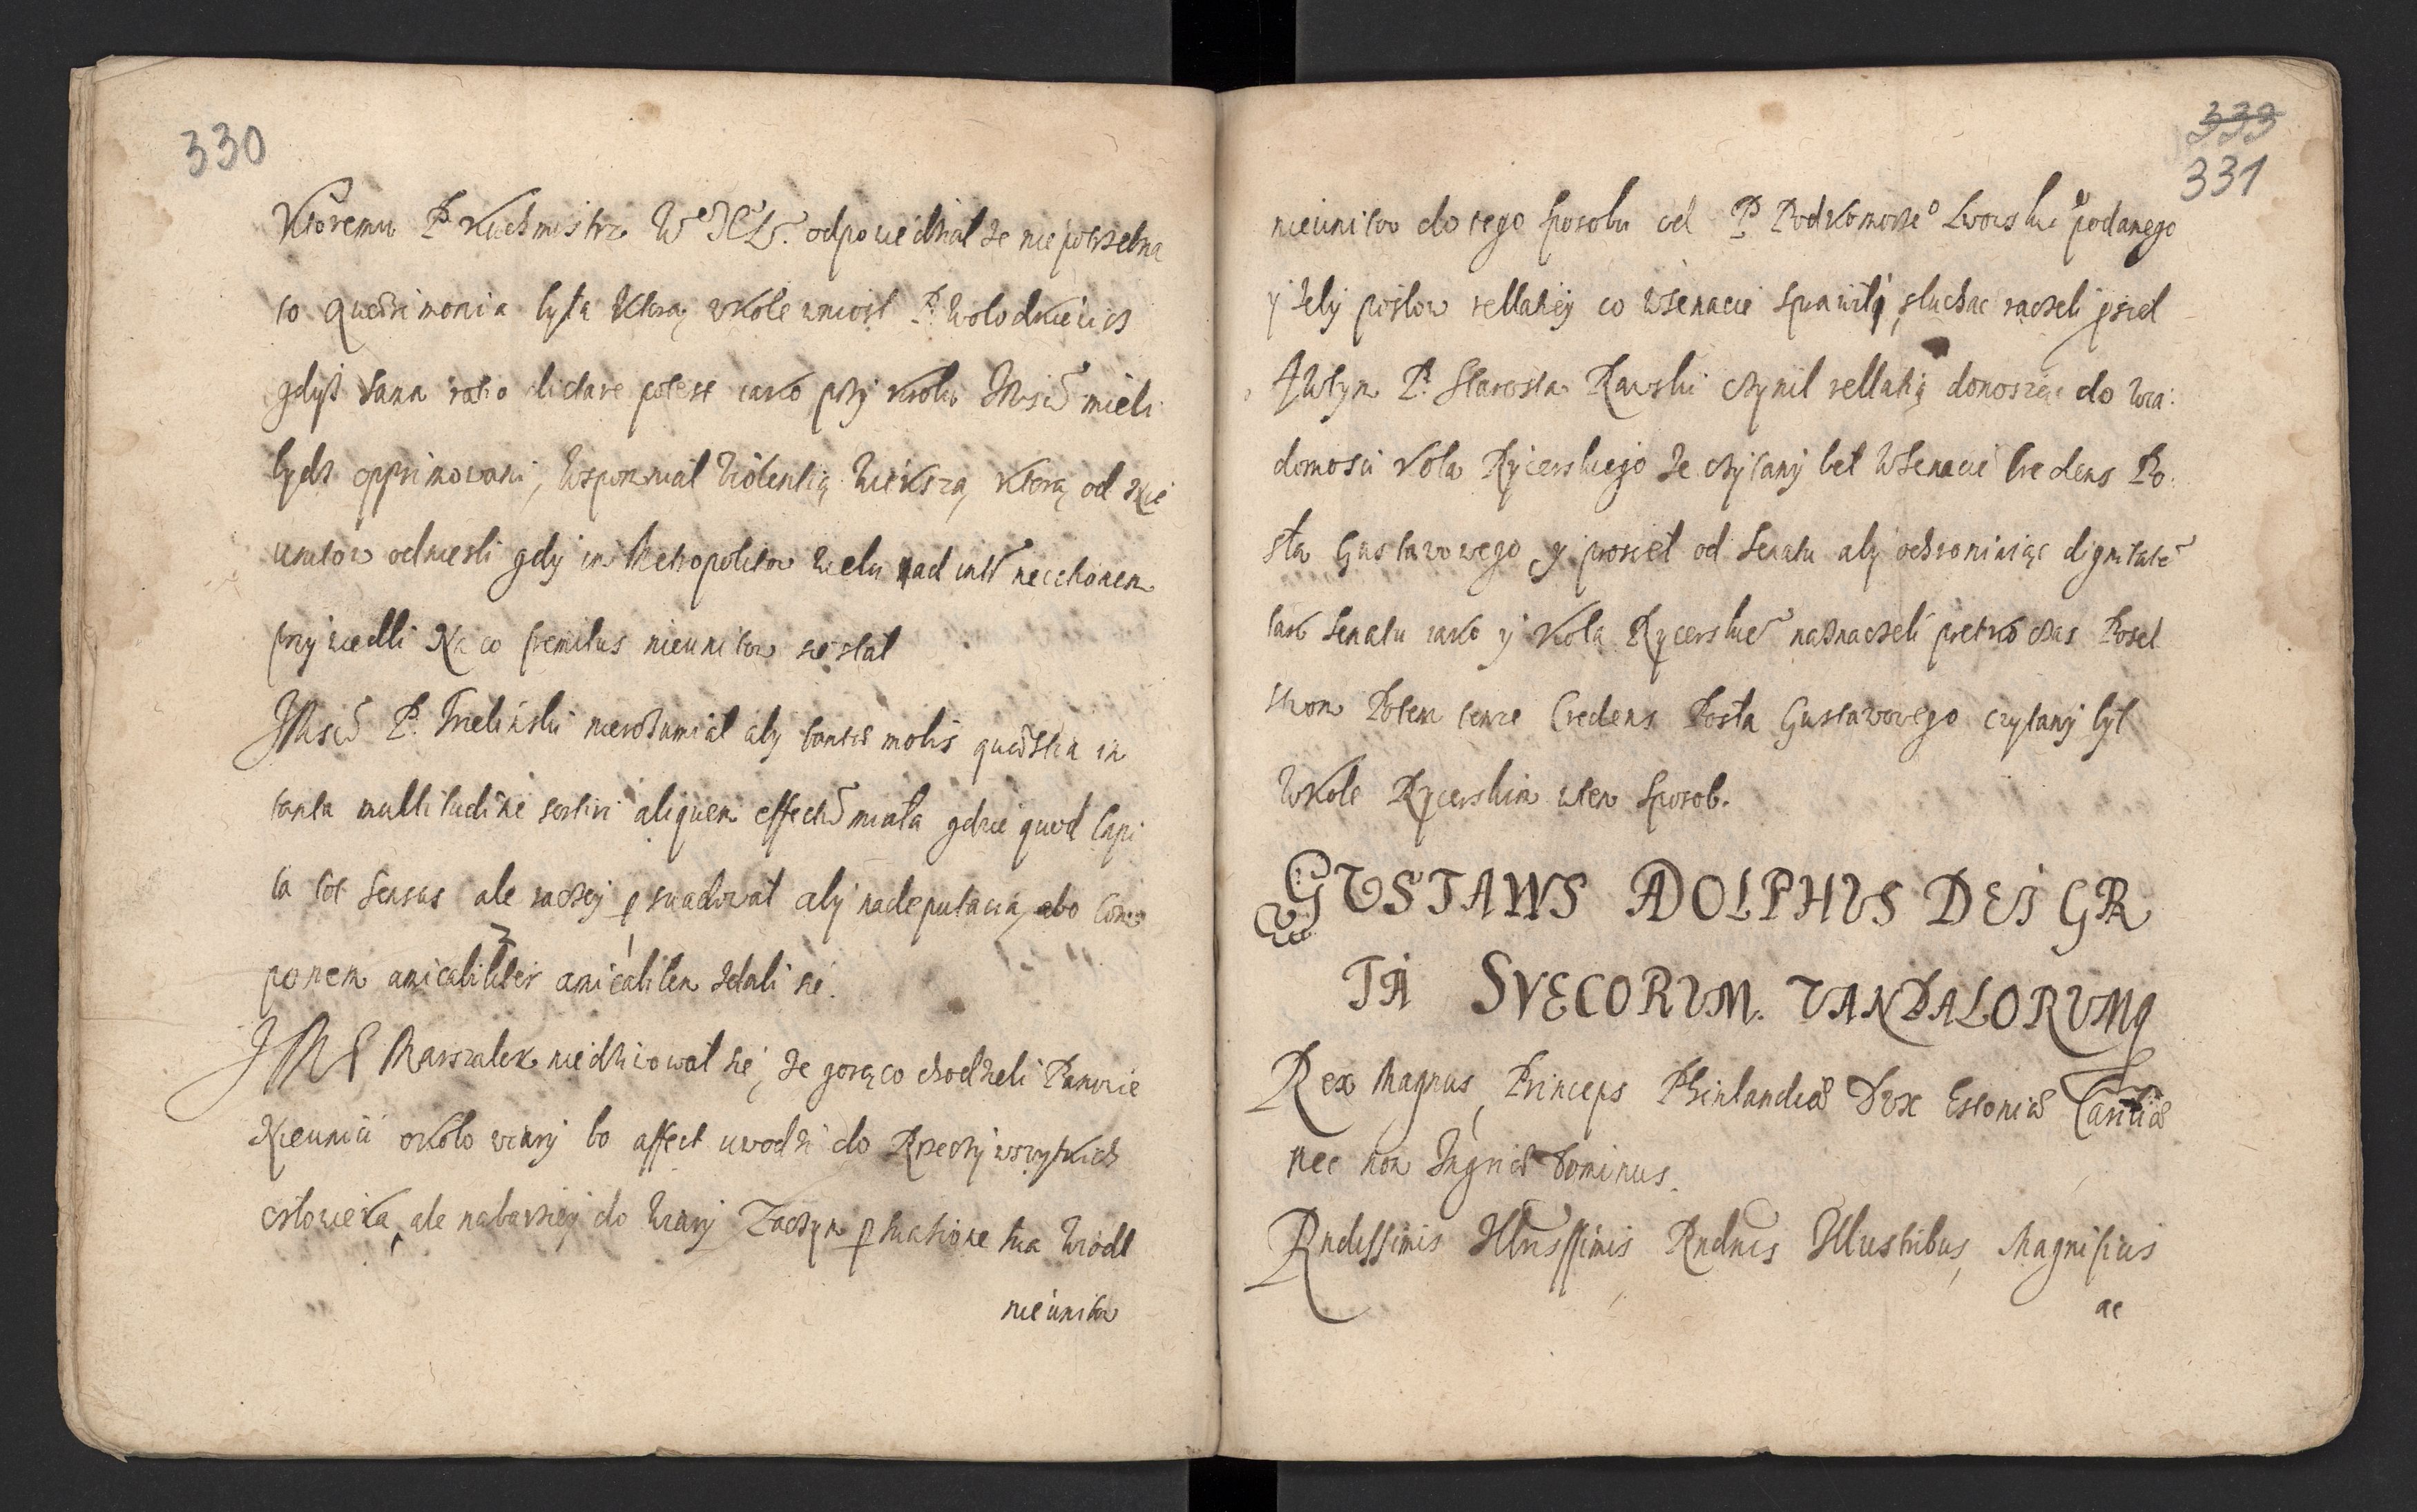 330
Ktoremu P. Kuchmistrz W X L. odpowiedział ze niepotrzebna
to querimonia była ktorą wkole wniosł P. Wołodkiewicz
gdyż sana ratio dictare potest iako przy krolu JMsci mieli
bydz opprimowani, wspomniał violentią większą, ktorą od Nie
unitow odniesli gdy ich Metropolitow wielu ad internecionem
przywiedli Na co fremitus nieunitow sie stał
JMsc P. Trelinski nierozumiał aby tantae molis quaestia in
tanta multitudine sortiri aliquem effectum miała gdzie quod capi
ta tot sensus ale raczey persuadował aby nadeputacią, abo com
ponem amicabiliter amicabilem zdali sie.
JMP Marszałek niedziwował sie, ze gorąco chodzieli Panowie
Nieunici około wiary bo affect uwodzi do Rzeczy wszytkich
człowieka, ale nabarziey do wiary Zaczym persuasione sua wiodł
nieunitow
333
331
nieunitow do tego sposobu od P. Podkomorzego Lwowskiego podanego
y zeby posłow rellatiey co wsenacie sprawili, słuchac raczeli przed
Aktyn P. Starosta Rawski czynił rellatią donosząc do wia
domosci koła Rycerskiego ze czytany bel wsenacie Credens Po
sła Gustawowego y prosieł od Senatu aby ochroniaiąc dignitatem
tak Senatu iako y Koła Rycerskiego naznaczeli prętko czas Posel
stwom Potem tenze Credens Posła Gustawowego czytany był
wkole Rycerskim wten sposob.
GUSTAWS ADOLPHUS DEI GR
TIA SVECORUM. VANDALORUMq
Rex Magnus, Princeps Phinlandiae Dux Estoniae Careliae
nec non Ingriae Dominus.
Rndissimis Illrissimis Rndnis Illustribus, Magnificis
ac